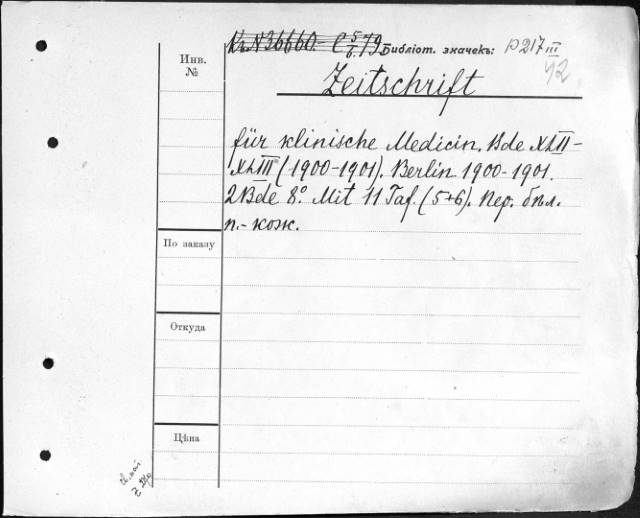 К.N 36660.- C 5/6.79 Библіот. значекъ: P 217 III
42
Инв.
№
Zeitschrift
für klinische Medicin. Bde XLII-
XLIII (1900-1901). Berlin 1900-1901.
2 Bde 8.° Mit 11 Taf. (5+6). Пер. бѣл.
п.- кож.
По заказу
Откуда
Цѣна